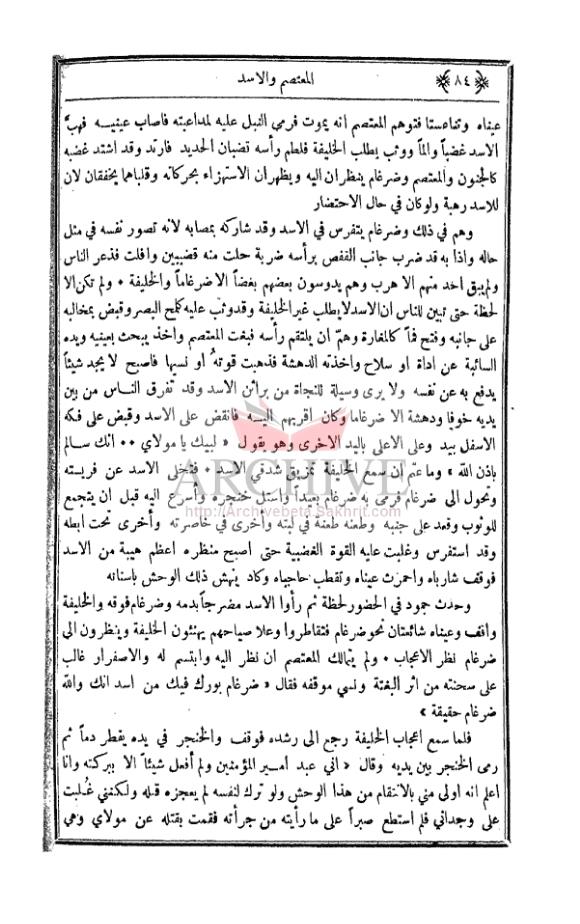 ٨٤
المعتصم والاسد
عيناه وتناعستا فتوهم المعتصم انه يموت فرمى النبل عليه لمداعبته فاصاب عينيه فهبَّ
الاسد غضباً والماً ووثب يطلب الخليفة فلطم رأسه قضبان الحديد فارتد وقد اشتد غضبه
كالجنون والمعتصم وضرغام ينظران اليه ويظهران الاستهزاء بحركاته وقلباهما يخفقان لان
للاسد رهبة ولو كان في حال الاحتضار
وهم في ذلك وضرغام يتفرس في الاسد وقد شاركه بمصابه لانه تصور نفسه في مثل
حاله واذا به قد ضرب جانب القفص برأسه ضربة حلت منه قضيبين وافلت فذعر الناس
ولم يبق احد منهم الا هرب وهم يدوسون بعضهم بعضاً الا ضرغاماً والخليفة ٠ ولم تكن الا
لحظة حتى تبين للناس ان الاسد لا يطلب غير الخليفة وقد وثب عليه كلمح البصر وقبض بمخالبه
على جانبه وفتح فماً كالمغارة وهمّ ان يلتقم رأسه فبغت المعتصم واخذ يبحث بعينيه ويده
السائبة عن اداة او سلاح واخذته الدهشة فذهبت قوتهُ او نسيها فاصبح لا يجد شيئاً
يدفع به عن نفسه ولا يرى وسيلة للنجاة من براثن الاسد وقد تفرق الناس من بين
يديه خوفا ودهشة الا ضرغاما وكان اقربهم اليه فانقض على الاسد وقبض على فكه
الاسفل بيد وعلى الاعلى باليد الاخرى وهو يقول « لبيك يا مولاي ٠٠ انك سالم
باذن الله » وما عتم ان سمع الخليفة تمزيق شدقي الاسد ٠ فتخلى الاسد عن فريسته
وتحول الى ضرغام فرمى به ضرغام بعيداً واستل خنجره وأسرع اليه قبل ان يتجمع
للوثوب وقعد على جنبه وطعنه طعنة في لبته وأخرى في خاصرته وأخرى تحت ابطه
وقد استفرس وغلبت عليه القوة الغضبية حتى اصبح منظره اعظم هيبة من الاسد
فوقف شارباه واحمرت عيناه وتقطب حاجباه وكاد ينهش ذلك الوحش باسنانه
وحدث جمود في الحضور لحظة ثم رأوا الاسد مضرجاً بدمه وضرغام فوقه والخليفة
واقف وعيناه شائعتان نحو ضرغام فتقاطروا وعلا صياحهم يهنئون الخليفة وينظرون الى
ضرغام نظر الاعجاب ٠ ولم يتمالك المعتصم ان نظر اليه وابتسم له والاصفرار غالب
على سحنته من اثر البغتة ونسي موقفه فقال « ضرغام بورك فيك من اسد انك والله
ضرغام حقيقة »
فلما سمع اعجاب الخليفة رجع الى رشده فوقف والخنجر في يده يقطر دماً ثم
رمى الخنجر بين يديه وقال « اني عبد أمير المؤمنين ولم أفعل شيئاً الا ببركته وانا
اعلم انه اولى مني بالانتقام من هذا الوحش ولو ترك لنفسه لم يعجزه قتله ولكنني غُلبت
على وجداني فلم استطع صبراً على ما رأيته من جرأته فقمت بقتله عن مولاي وهي
ARCHIVE
http://Archivebeta.Sakhrit.com